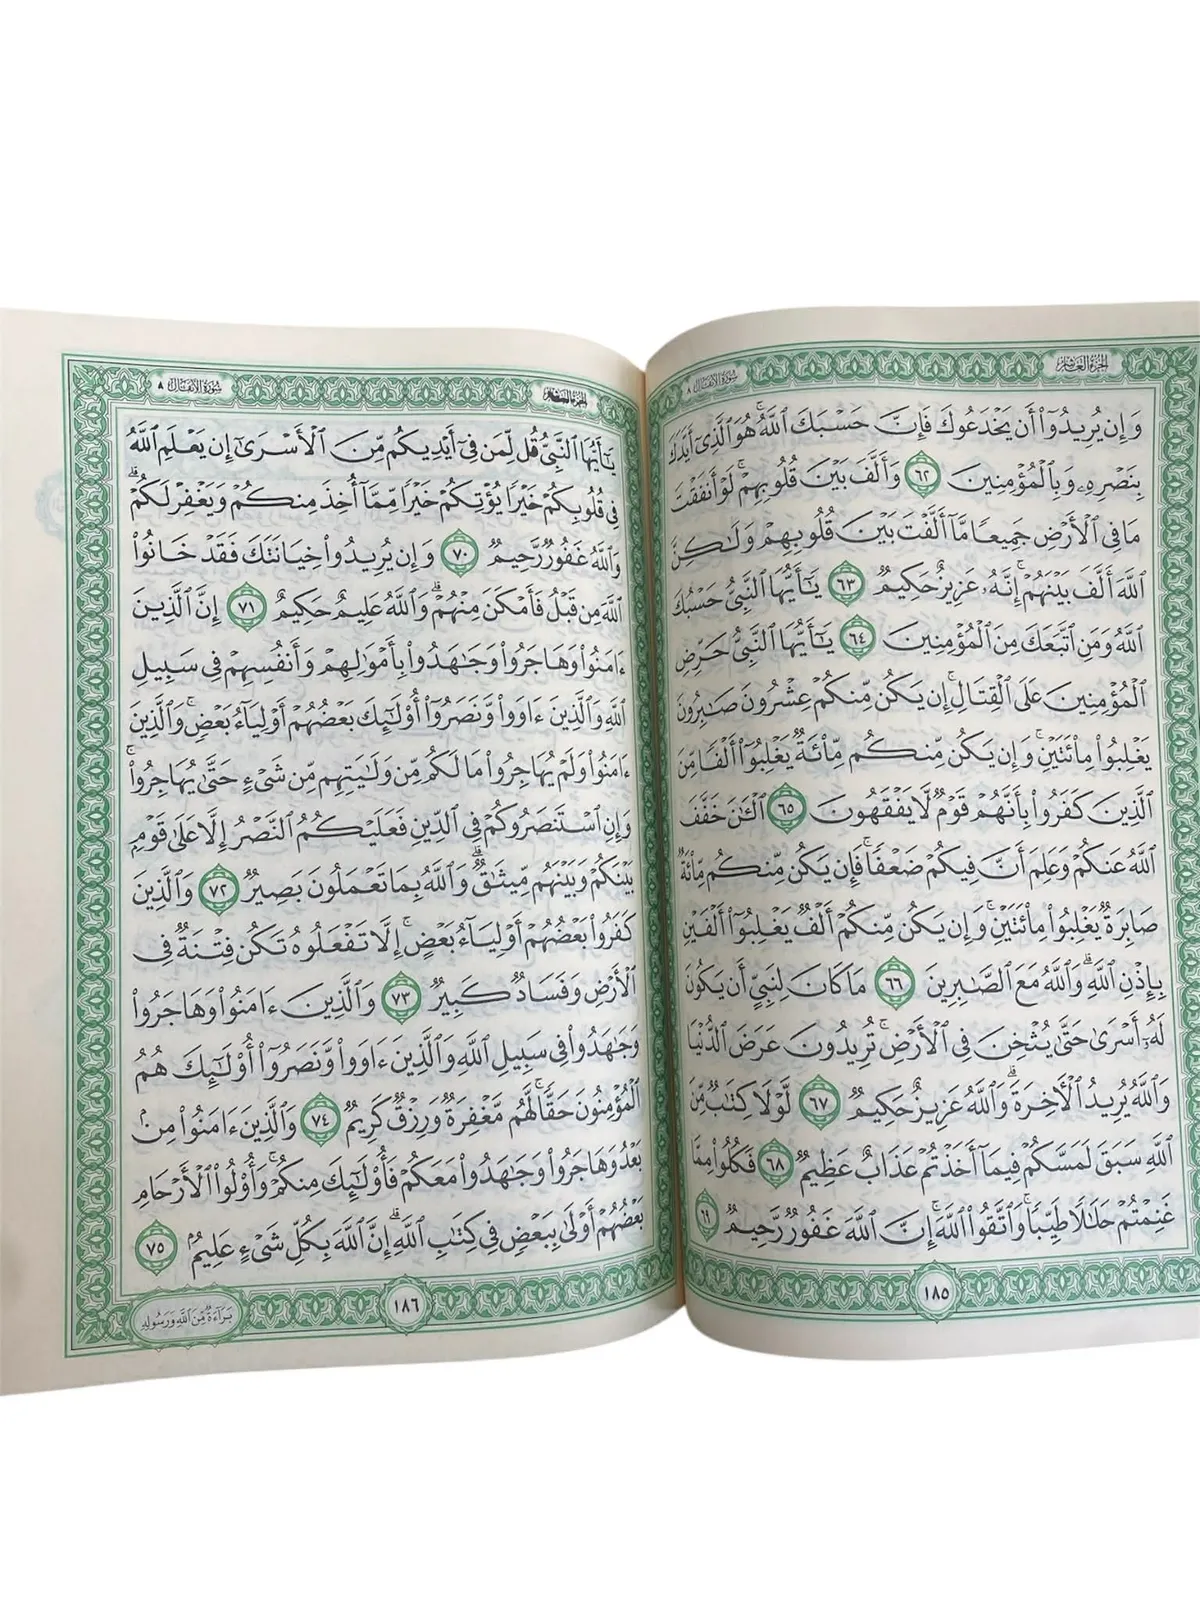 الجزء العاشر
سورة الأنفال ٨
وَإِن يُرِيدُوٓا۟ أَن يَخْدَعُوكَ فَإِنَّ حَسْبَكَ ٱللَّهُ ۚ هُوَ ٱلَّذِىٓ أَيَّدَكَ
بِنَصْرِهِۦ وَبِٱلْمُؤْمِنِينَ ٦٢ وَأَلَّفَ بَيْنَ قُلُوبِهِمْ ۚ لَوْ أَنفَقْتَ
مَا فِى ٱلْأَرْضِ جَمِيعًا مَّآ أَلَّفْتَ بَيْنَ قُلُوبِهِمْ وَلَـٰكِنَّ
ٱللَّهَ أَلَّفَ بَيْنَهُمْ ۚ إِنَّهُۥ عَزِيزٌ حَكِيمٌ ٦٣ يَـٰٓأَيُّهَا ٱلنَّبِىُّ حَسْبُكَ
ٱللَّهُ وَمَنِ ٱتَّبَعَكَ مِنَ ٱلْمُؤْمِنِينَ ٦٤ يَـٰٓأَيُّهَا ٱلنَّبِىُّ حَرِّضِ
ٱلْمُؤْمِنِينَ عَلَى ٱلْقِتَالِ ۚ إِن يَكُن مِّنكُمْ عِشْرُونَ صَـٰبِرُونَ
يَغْلِبُوا۟ مِا۟ئَتَيْنِ ۚ وَإِن يَكُن مِّنكُم مِّا۟ئَةٌ يَغْلِبُوٓا۟ أَلْفًا مِّنَ
ٱلَّذِينَ كَفَرُوا۟ بِأَنَّهُمْ قَوْمٌ لَّا يَفْقَهُونَ ٦٥ ٱلْـَٔـٰنَ خَفَّفَ
ٱللَّهُ عَنكُمْ وَعَلِمَ أَنَّ فِيكُمْ ضَعْفًا ۚ فَإِن يَكُن مِّنكُم مِّا۟ئَةٌ
صَابِرَةٌ يَغْلِبُوا۟ مِا۟ئَتَيْنِ ۚ وَإِن يَكُن مِّنكُمْ أَلْفٌ يَغْلِبُوٓا۟ أَلْفَيْنِ
بِإِذْنِ ٱللَّهِ ۗ وَٱللَّهُ مَعَ ٱلصَّـٰبِرِينَ ٦٦ مَا كَانَ لِنَبِىٍّ أَن يَكُونَ
لَهُۥٓ أَسْرَىٰ حَتَّىٰ يُثْخِنَ فِى ٱلْأَرْضِ ۚ تُرِيدُونَ عَرَضَ ٱلدُّنْيَا
وَٱللَّهُ يُرِيدُ ٱلْـَٔاخِرَةَ ۗ وَٱللَّهُ عَزِيزٌ حَكِيمٌ ٦٧ لَّوْلَا كِتَـٰبٌ مِّنَ
ٱللَّهِ سَبَقَ لَمَسَّكُمْ فِيمَآ أَخَذْتُمْ عَذَابٌ عَظِيمٌ ٦٨ فَكُلُوا۟ مِمَّا
غَنِمْتُمْ حَلَـٰلًا طَيِّبًا ۚ وَٱتَّقُوا۟ ٱللَّهَ ۚ إِنَّ ٱللَّهَ غَفُورٌ رَّحِيمٌ ٦٩
١٨٥
الجزء العاشر
سورة الأنفال ٨
يَـٰٓأَيُّهَا ٱلنَّبِىُّ قُل لِّمَن فِىٓ أَيْدِيكُم مِّنَ ٱلْأَسْرَىٰٓ إِن يَعْلَمِ ٱللَّهُ
فِى قُلُوبِكُمْ خَيْرًا يُؤْتِكُمْ خَيْرًا مِّمَّآ أُخِذَ مِنكُمْ وَيَغْفِرْ لَكُمْ ۗ
وَٱللَّهُ غَفُورٌ رَّحِيمٌ ٧٠ وَإِن يُرِيدُوا۟ خِيَانَتَكَ فَقَدْ خَانُوا۟
ٱللَّهَ مِن قَبْلُ فَأَمْكَنَ مِنْهُمْ ۗ وَٱللَّهُ عَلِيمٌ حَكِيمٌ ٧١ إِنَّ ٱلَّذِينَ
ءَامَنُوا۟ وَهَاجَرُوا۟ وَجَـٰهَدُوا۟ بِأَمْوَٰلِهِمْ وَأَنفُسِهِمْ فِى سَبِيلِ
ٱللَّهِ وَٱلَّذِينَ ءَاوَوا۟ وَّنَصَرُوٓا۟ أُو۟لَـٰٓئِكَ بَعْضُهُمْ أَوْلِيَآءُ بَعْضٍ ۚ وَٱلَّذِينَ
ءَامَنُوا۟ وَلَمْ يُهَاجِرُوا۟ مَا لَكُم مِّن وَلَـٰيَتِهِم مِّن شَىْءٍ حَتَّىٰ يُهَاجِرُوا۟ ۚ
وَإِنِ ٱسْتَنصَرُوكُمْ فِى ٱلدِّينِ فَعَلَيْكُمُ ٱلنَّصْرُ إِلَّا عَلَىٰ قَوْمٍۭ
بَيْنَكُمْ وَبَيْنَهُم مِّيثَـٰقٌ ۗ وَٱللَّهُ بِمَا تَعْمَلُونَ بَصِيرٌ ٧٢ وَٱلَّذِينَ
كَفَرُوا۟ بَعْضُهُمْ أَوْلِيَآءُ بَعْضٍ ۚ إِلَّا تَفْعَلُوهُ تَكُن فِتْنَةٌ فِى
ٱلْأَرْضِ وَفَسَادٌ كَبِيرٌ ٧٣ وَٱلَّذِينَ ءَامَنُوا۟ وَهَاجَرُوا۟
وَجَـٰهَدُوا۟ فِى سَبِيلِ ٱللَّهِ وَٱلَّذِينَ ءَاوَوا۟ وَّنَصَرُوٓا۟ أُو۟لَـٰٓئِكَ هُمُ
ٱلْمُؤْمِنُونَ حَقًّا ۚ لَّهُم مَّغْفِرَةٌ وَرِزْقٌ كَرِيمٌ ٧٤ وَٱلَّذِينَ ءَامَنُوا۟ مِنۢ
بَعْدُ وَهَاجَرُوا۟ وَجَـٰهَدُوا۟ مَعَكُمْ فَأُو۟لَـٰٓئِكَ مِنكُمْ ۚ وَأُو۟لُوا۟ ٱلْأَرْحَامِ
بَعْضُهُمْ أَوْلَىٰ بِبَعْضٍ فِى كِتَـٰبِ ٱللَّهِ ۗ إِنَّ ٱللَّهَ بِكُلِّ شَىْءٍ عَلِيمٌۢ ٧٥
١٨٦
بَرَآءَةٌ مِّنَ ٱللَّهِ وَرَسُولِهِۦٓ